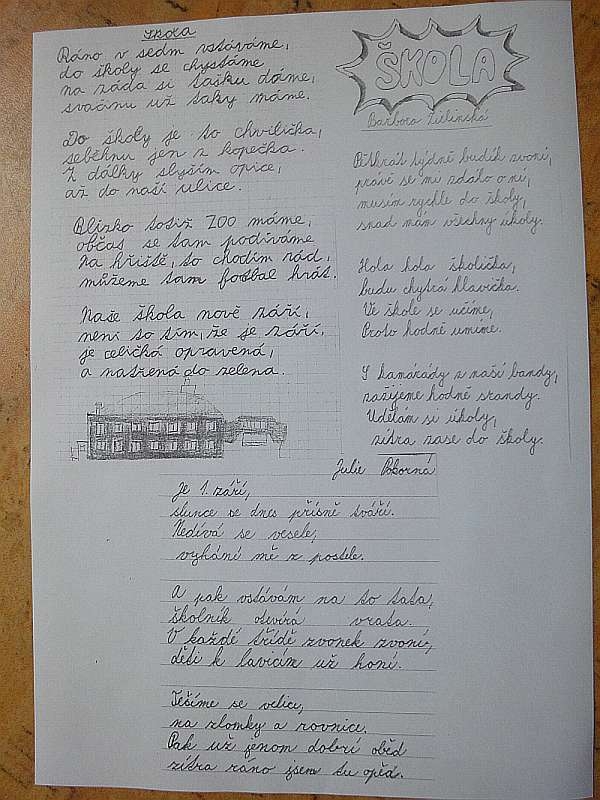 Škola
Ráno v sedm vstáváme,
do školy se chystáme
na záda si tašku dáme,
svačinu už taky máme.
Do školy je to chvilička,
seběhnu jen z kopečka.
Z dálky slyším opice,
až do naší ulice.
Blízko totiž ZOO máme,
občas se tam podíváme
Na hřiště, to chodím rád,
můžeme tam fotbal hrát.
Naše škola nově září,
není to tím, že je září.
je celičká opravená,
a natřená do zelena.
ŠKOLA
Barbora Zielinská
Pětkrát týdně budík zvoní,
právě se mi zdálo o ní,
musím rychle do školy,
snad mám všechny úkoly.
Hola hola školička,
budu chytrá hlavička.
Ve škole se učíme,
Proto hodně umíme.
S kamarády z naší bandy,
zažijeme hodně srandy.
Udělám si úkoly,
zítra zase do školy.
Julie Pokorná
Je 1. září,
slunce se dnes přísně tváří.
Nedívá se vesele,
vyhání mě z postele.
A pak vstávám na to tata,
školník otvírá vrata.
V každé třídě zvonek zvoní,
děti k lavicím už honí.
Těšíme se velice,
na zlomky a rovnice.
Pak už jenom dobrí oběd
zítra ráno jsem tu opěd.